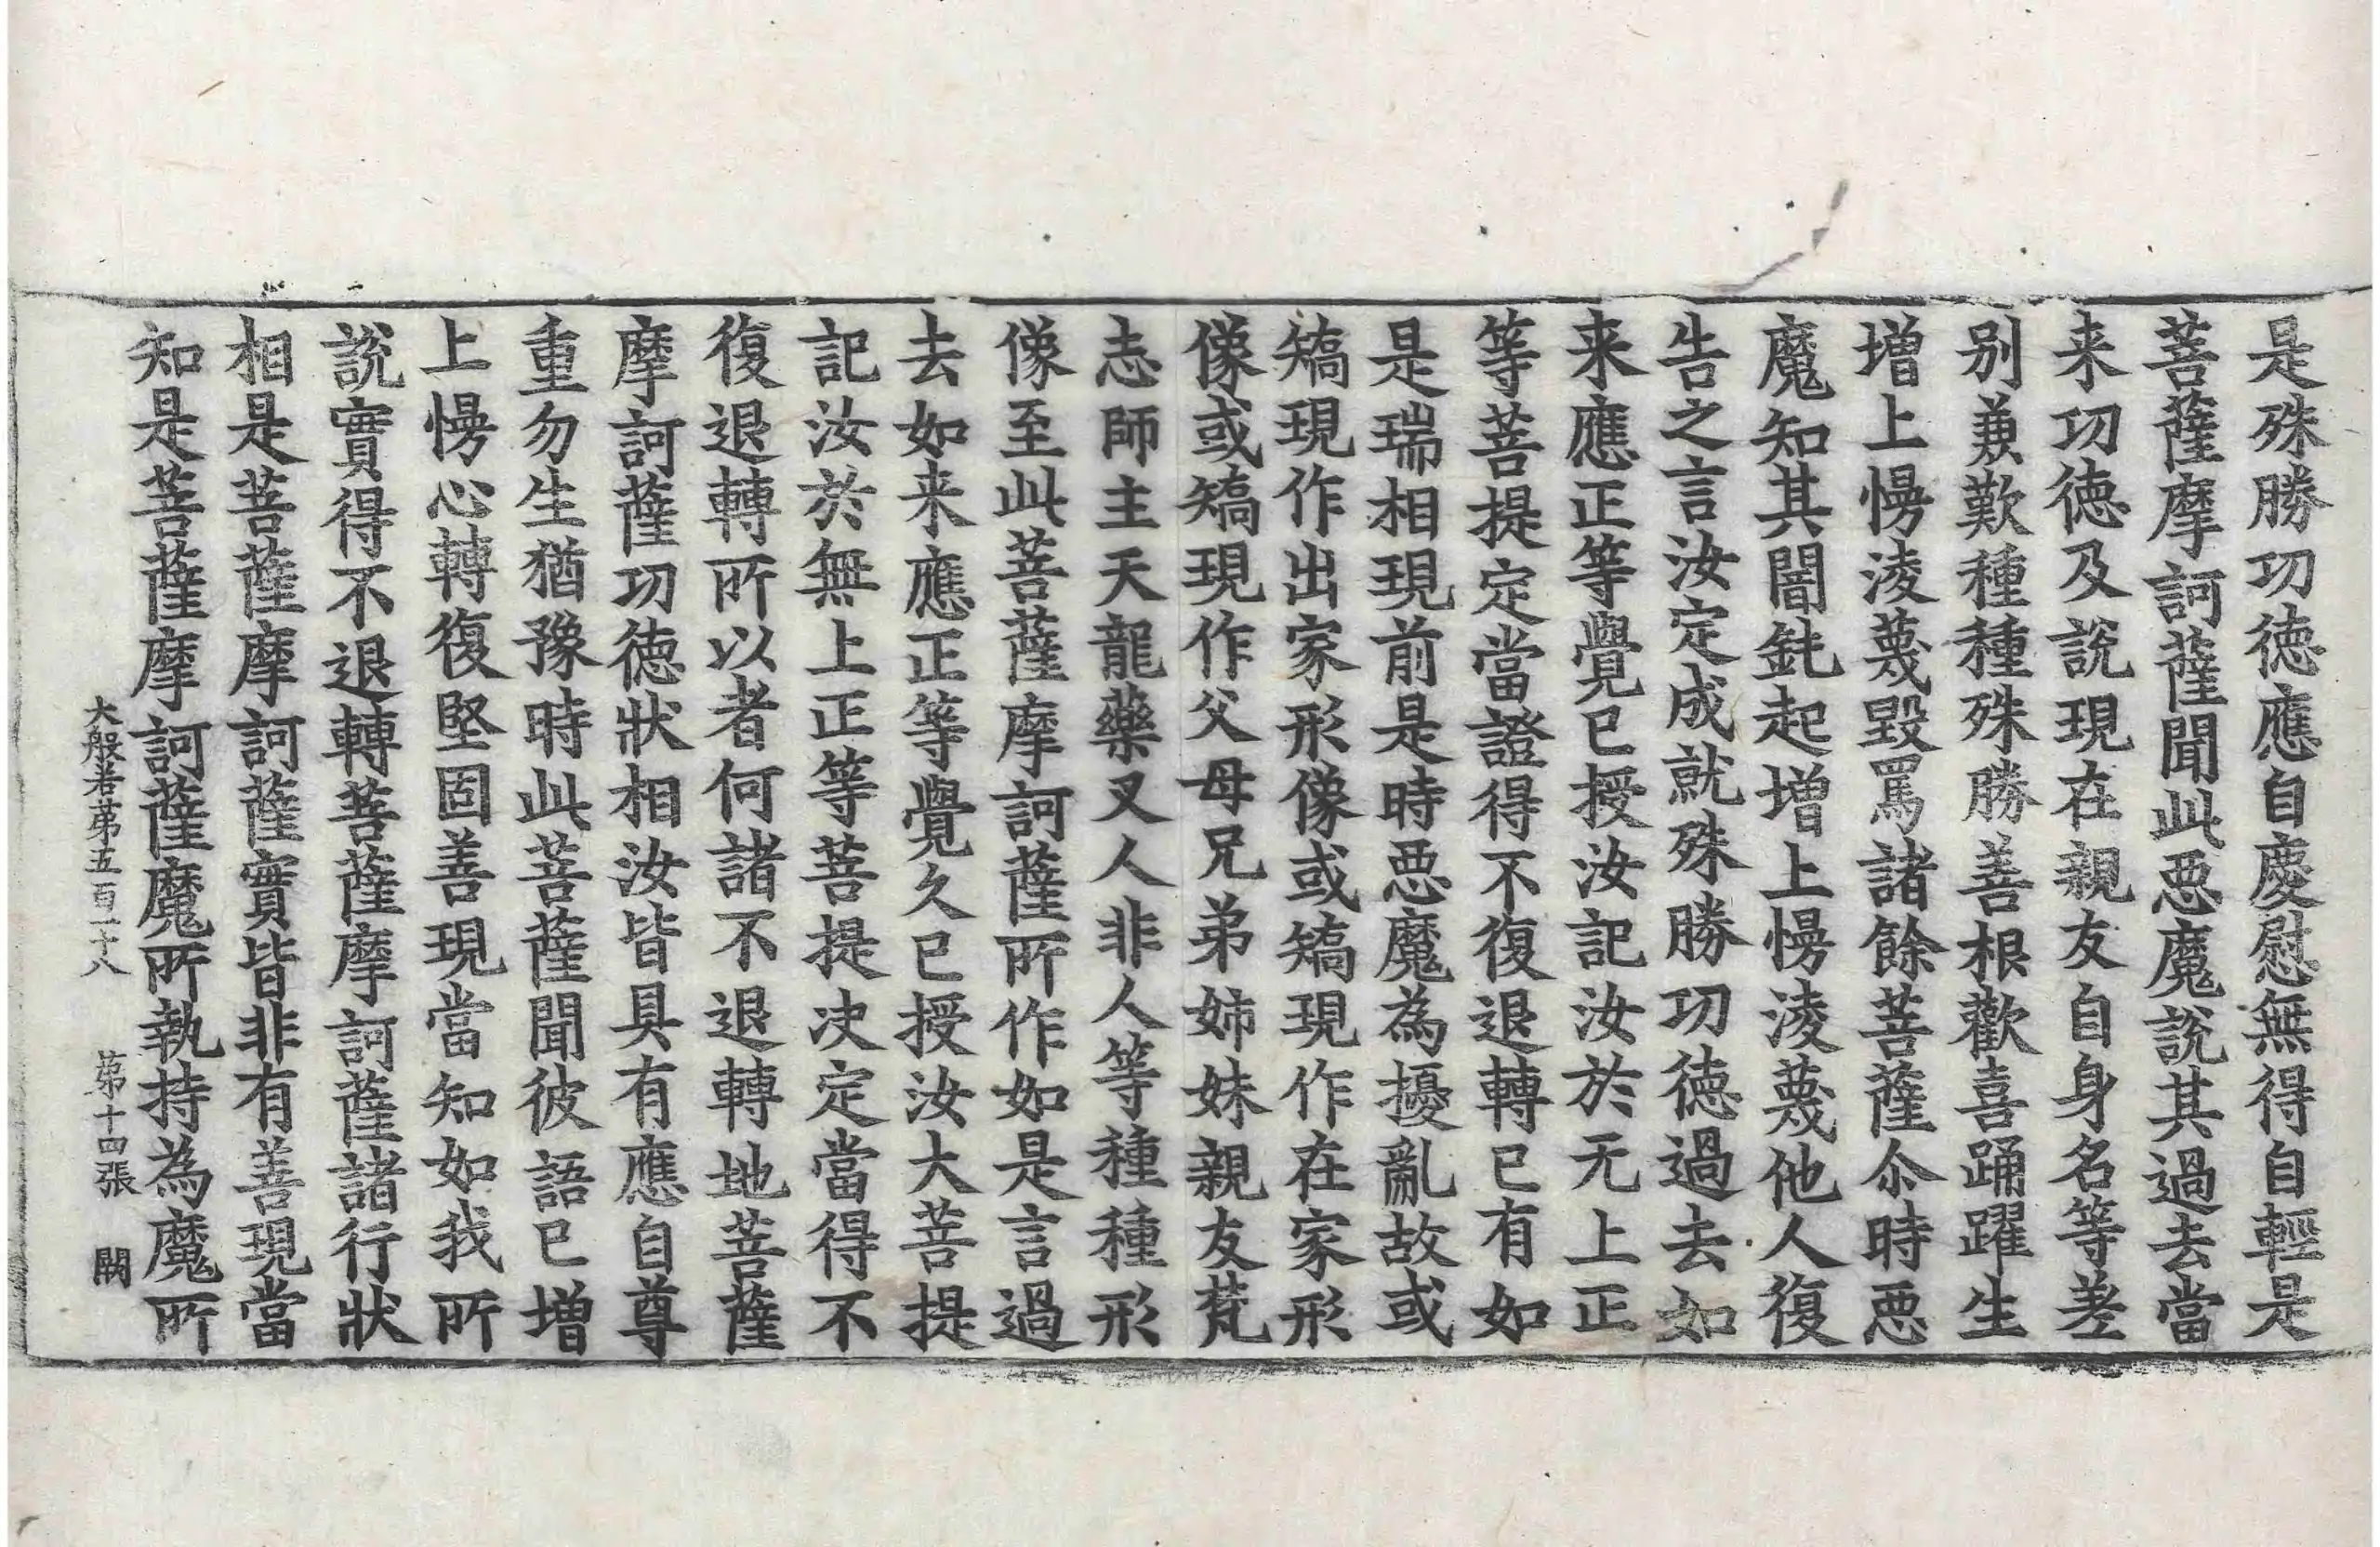 是殊勝功徳應自慶慰無得自輕是
菩薩摩訶薩聞此惡魔說其過去當
来功徳及說現在親友自身名等差
別兼歎種種殊勝善根歡喜踊躍生
增上慢淩蔑毀罵諸餘菩薩尒時惡
魔知其闇鈍起增上慢淩蔑他人復
告之言汝定成就殊勝功徳過去如
来應正等覺已授汝記汝於无上正
等菩提定當證得不復退轉已有如
是瑞相現前是時惡魔為擾亂故或
矯現作出家形像或矯現作在家形
像或矯現作父母兄弟姉妹親友梵
志師主天龍藥叉人非人等種種形
像至此菩薩摩訶薩所作如是言過
去如来應正等覺久已授汝大菩提
記汝於無上正等菩提决定當得不
復退轉所以者何諸不退轉地菩薩
摩訶薩功徳狀相汝皆具有應自尊
重勿生猶豫時此菩薩聞彼語已增
上慢心轉復堅固善現當知如我所
說實得不退轉菩薩摩訶薩諸行狀
相是菩薩摩訶薩實皆非有善現當
知是菩薩摩訶薩魔所執持為魔所
大般若第五百一十八 第十四張 闕